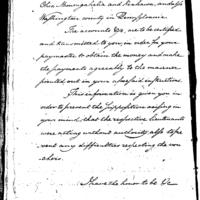 Ohio Monongahalia and Kanhawa, and also
Washington county in Pennsylvania.
The accounts &c, are to be certified
and transmitted to you, in order for your
paymaster to obtain the money and make
the payments agreeably to the manner
pointed out in your aforesaid instructions.
This information is given you in
order to prevent the supposition arising in
your mind that the respective lieutenants
were acting without authority also to pre
vent any difficulties respecting the
I have the honor to be &c